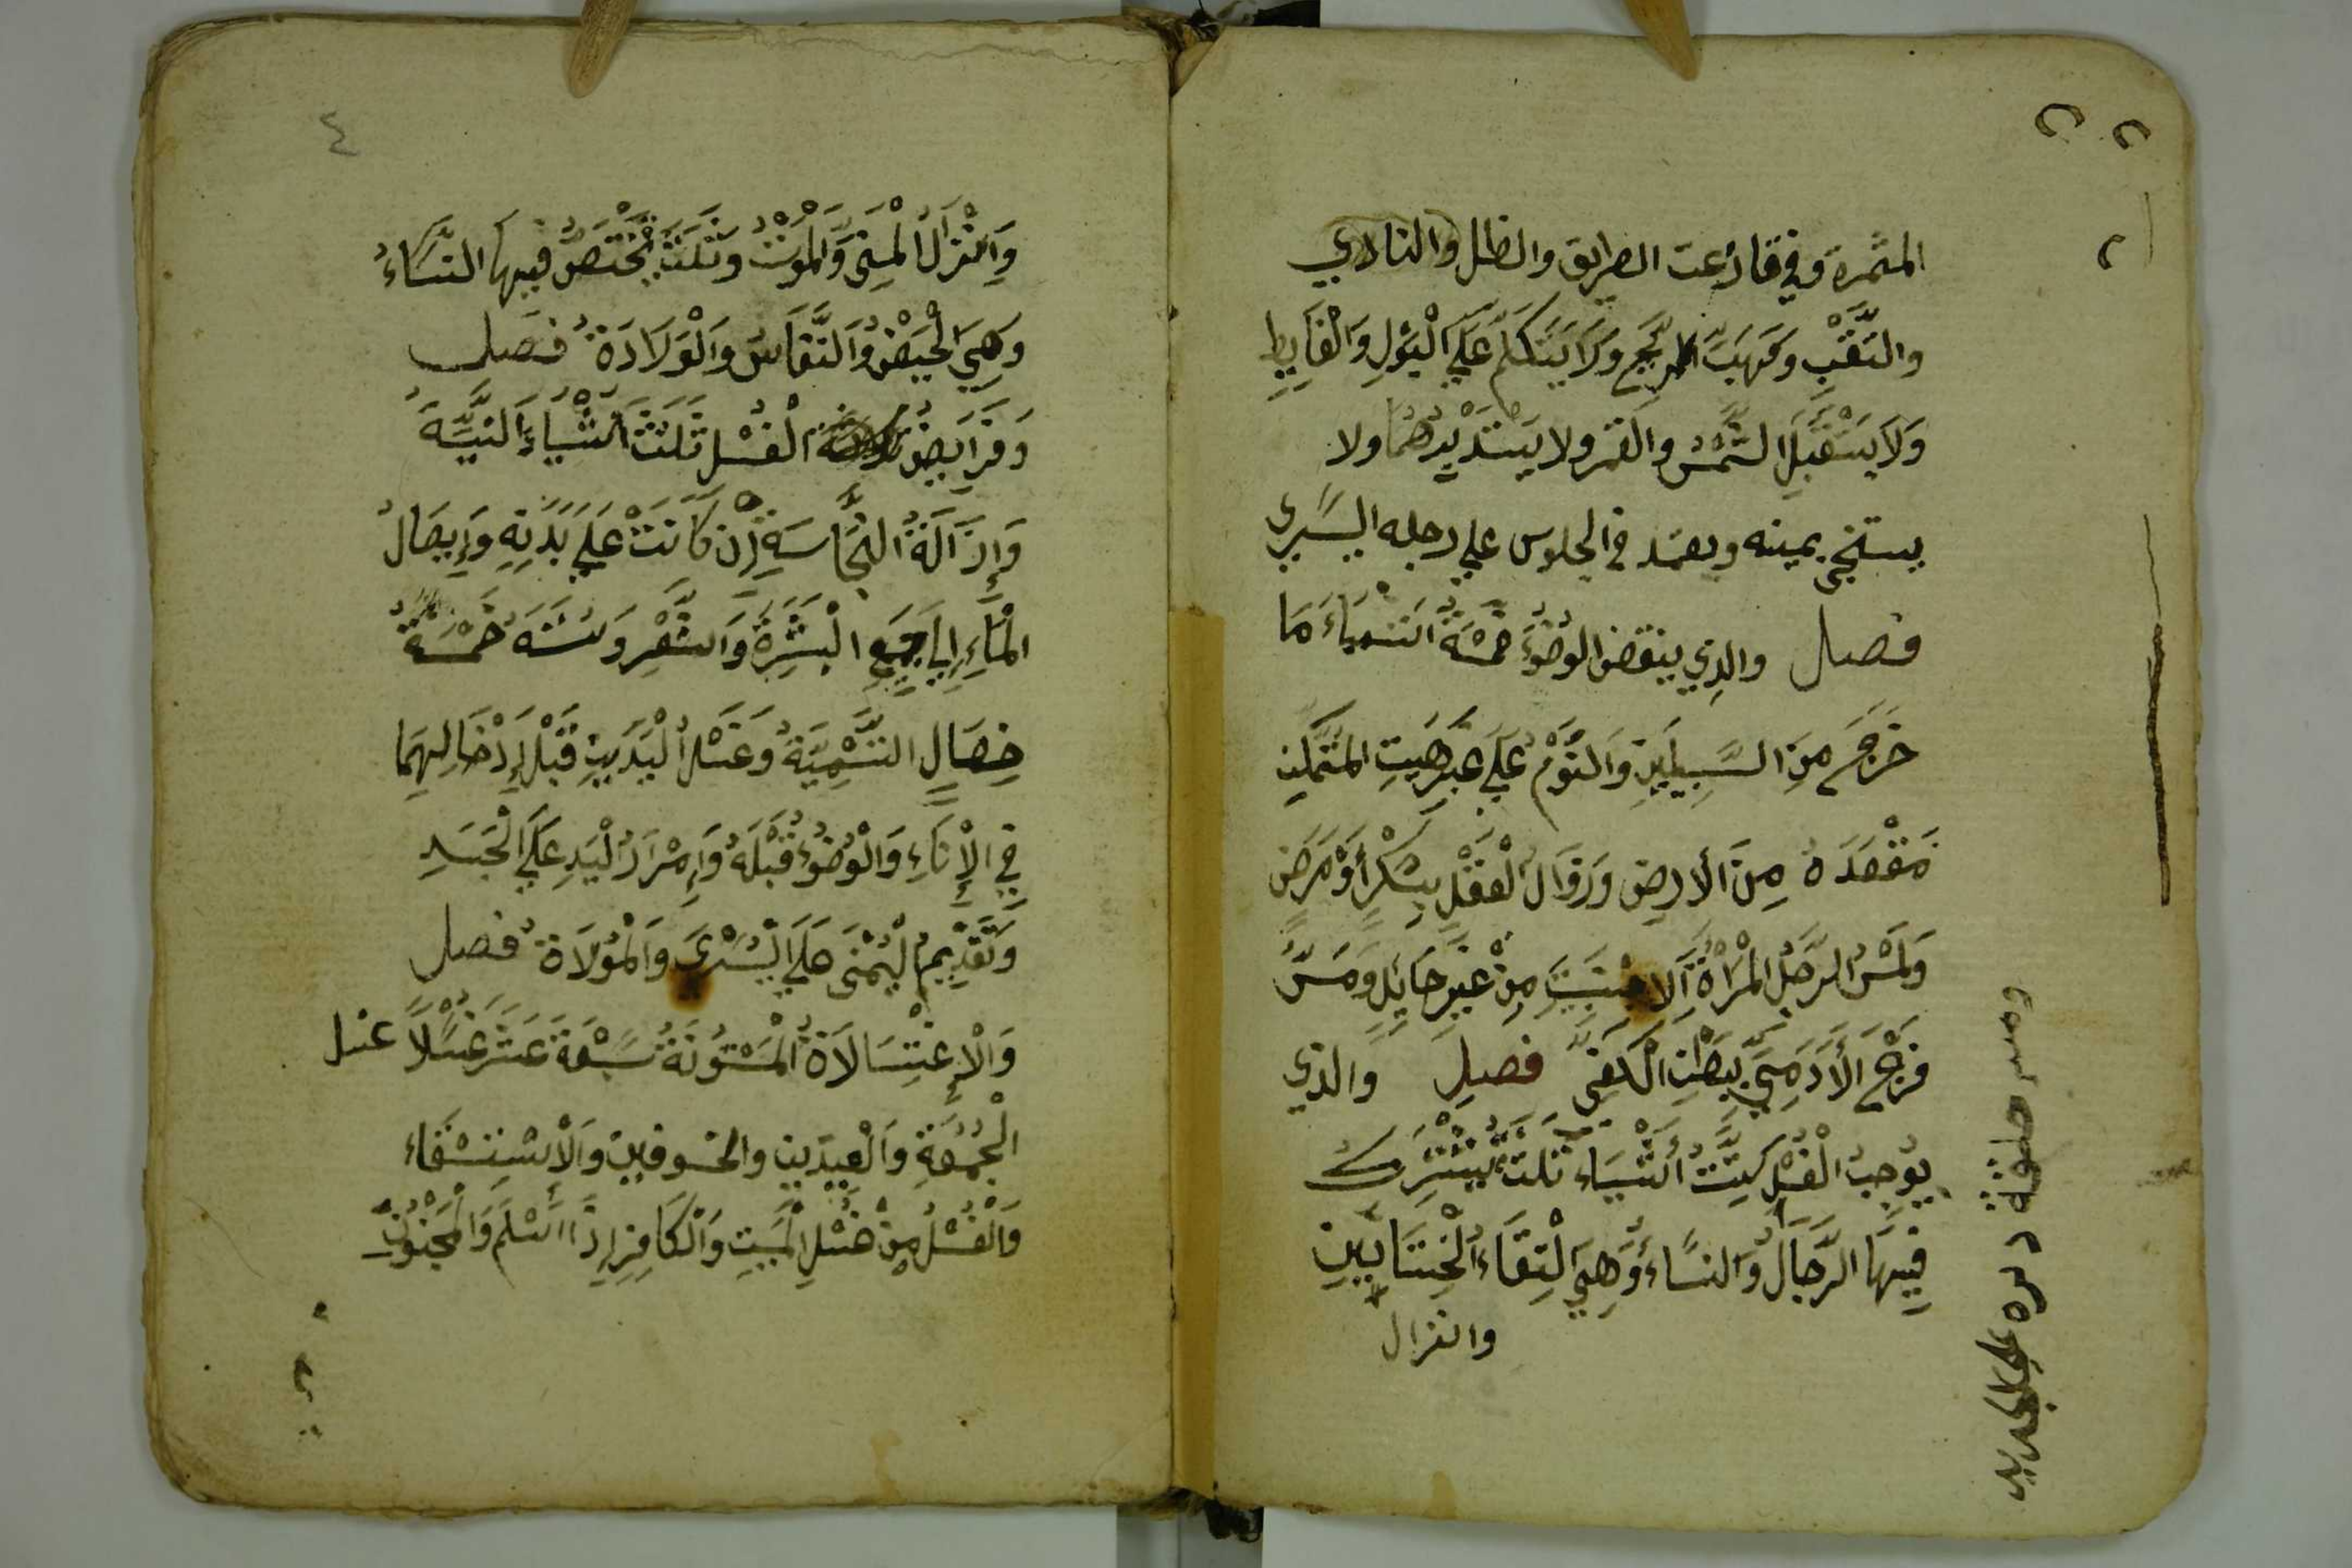 المثمرة وفي قارعت الطريق والظل والنادي
والثقب ومهبّ الريح ولا يتكلم علي البول والغايط
ولا يستقبل الشمس والقمر ولا يستدبرهما ولا
يستنجي بيمينه ويعتمد في الجلوس علي رجله اليسري
فصل والذي ينقض الوضوء خمسة اشياء ما
خرج من السبيلين والنوم علي غير هيت المتمكن
مقعده من الارض وزوال العقل بسكر أو مرض
ولمس الرجل المرأة الاجنبية من غير حايل ومس
فرج الأدمي ببطن الكف فصل والذي
يوجب الغسل ستت أشياء ثلث يشترك
فيها الرجال والنساء وهي التقاء الختانين
وانزال
علي الجديد
٤
وانزال المني والموت وثلث يختص فيها النساء
وهي الحيض والنفاس والولادة فصل
وفرايض الغسل ثلثت أشياء النية
وإزالة النجاسة إن كانت علي بدنه وإيصال
الماء إلي جميع البشرة والشعر وسننه خمسة
خصال التسمية وغسل اليدين قبل إدخالهما
في الإناء والوضوء قبله وإمرار اليد علي الجسد
وتقديم اليمني علي اليسري والمولاة فصل
والإغتسالاة المسنونة سبعة عشر غسلاً غسل
الجمعة والعيدين والخسوفين والاستسقاء
والغسل من غسل الميت والكافر إذا اسلم والمجنون